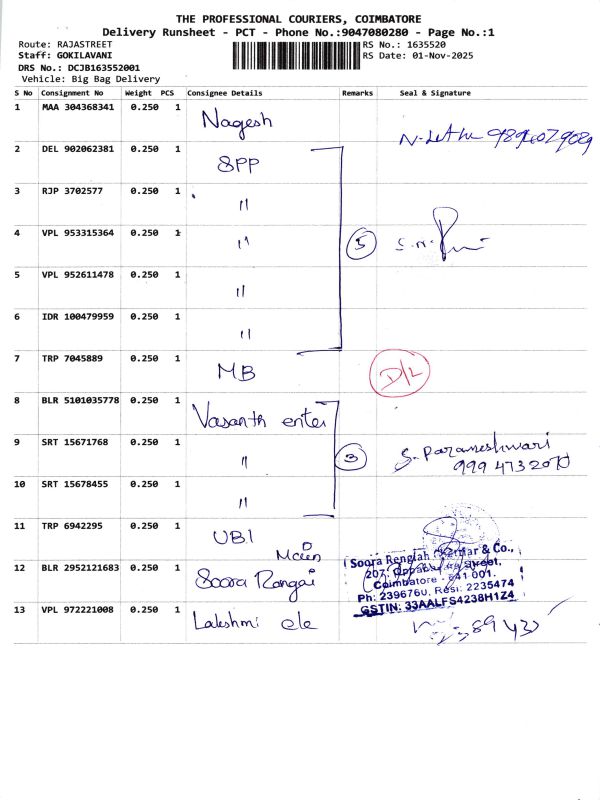 THE PROFESSIONAL COURIERS, COIMBATORE
Delivery Runsheet - PCT - Phone No.:9047080280 - Page No.:1
Route: RAJASTREET
Staff: GOKILAVANI
DRS No.: DCJB163552001
Vehicle: Big Bag Delivery
RS No.: 1635520
RS Date: 01-Nov-2025
S No Consignment No Weight PCS Consignee Details Remarks Seal & Signature
1 MAA 304368341 0.250 1 Nagesh
2 DEL 902062381 0.250 1 SPP
3 RJP 3702577 0.250 1 "
4 VPL 953315364 0.250 1 " 5
5 VPL 952611478 0.250 1 "
6 IDR 100479959 0.250 1 "
7 TRP 7045889 0.250 1 MB D/L
8 BLR 5101035778 0.250 1 Vasanth enter
9 SRT 15671768 0.250 1 " 3 S. Parameshwari
10 SRT 15678455 0.250 1 "
11 TRP 6942295 0.250 1 UBI
12 BLR 2952121683 0.250 1 Soora Rangai
Soora Rengiah & Co.,
207, Oppan Street,
Coimbatore - 641 001.
Ph: 2396760, Resi: 2235474
GSTIN: 33AALFS4238H1Z4
13 VPL 972221008 0.250 1 Lakshmi ele